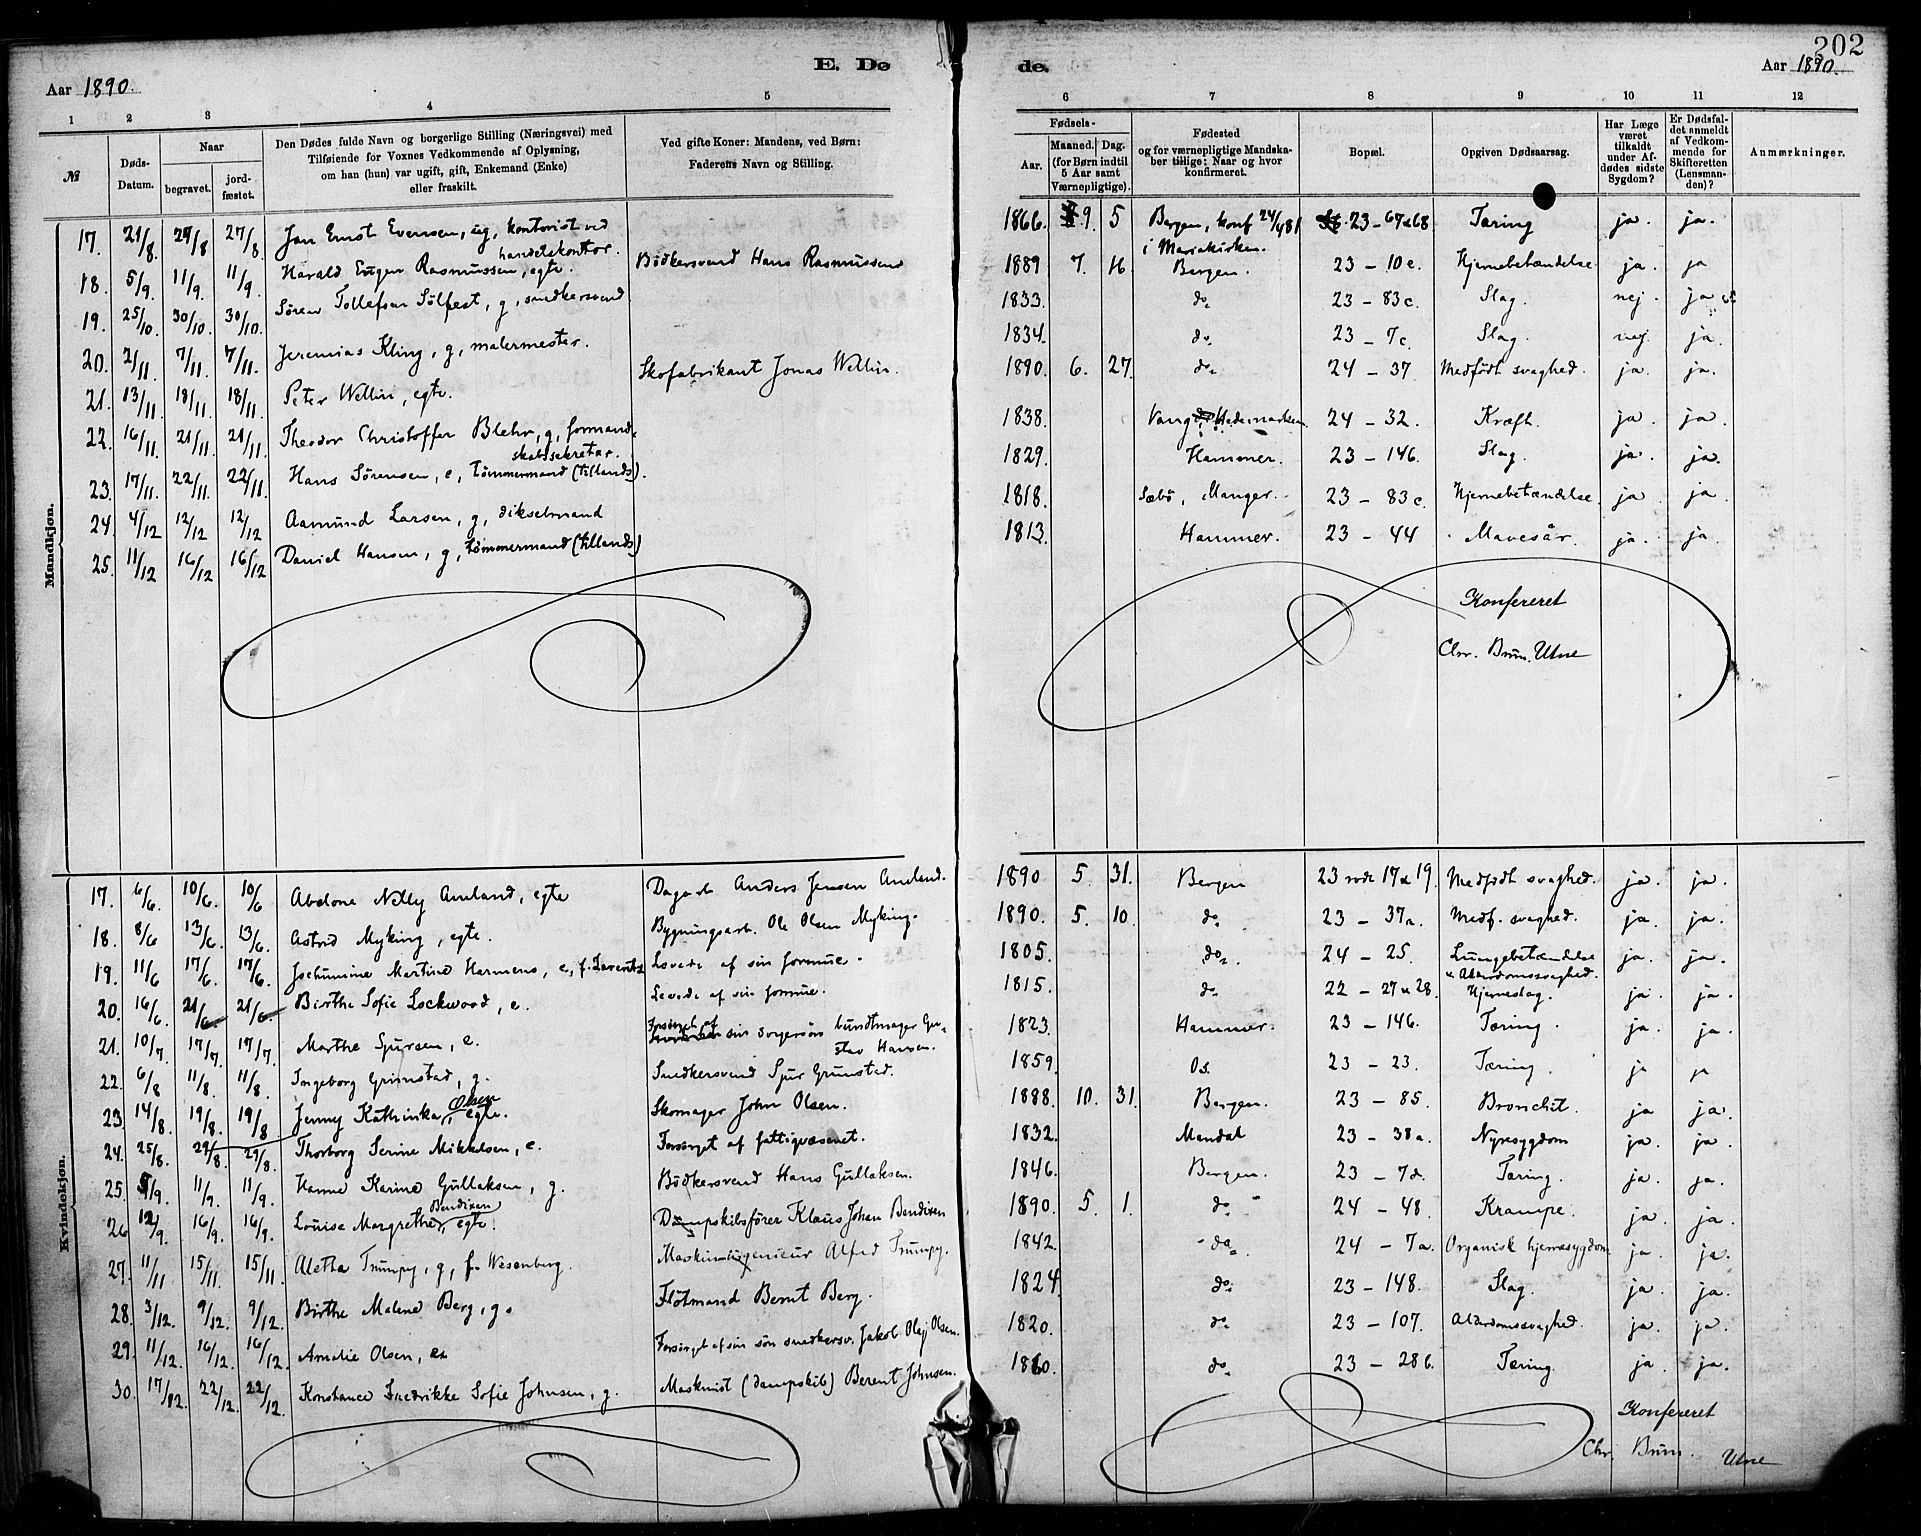 202
E. Dø
de.
Aar 1890.
Aar 1890.
1 2 3 4 5
6 7 8 9 10 11 12
№
Døds-Datum.
Naar
begravet.
jord-fæstet.
Den Dødes fulde Navn og borgerlige Stilling (Næringsvei) med
Tilføiende for Voxnes Vedkommende af Oplysning,
om han (hun) var ugift, gift, Enkemand (Enke)
eller fraskilt.
Ved gifte Koner: Mandens, ved Børn:
Faderens Navn og Stilling.
Fødsels-
Aar.
Maaned. Dag.
(for Børn indtil
5 Aar samt
Værnepligtige).
Fødested
og for værnepligtige Mandska-
ber tillige: Naar og hvor
konfirmeret.
Bopæl.
Opgiven Dødsaarsag.
Har Læge
været
tilkaldt
under Af-
dødes sidste
Sygdom?
Er Dødsfal-
det anmeldt
af Vedkom-
mende for
Skifteretten
(Lensman-
den)?
Anmærkninger.
Mandkjøn.
17. 21/8. 27/8 27/8. Jan Ernst Evensen, ug, kontorist ved handelskontor. 1866. 9. 5 Bergen, konf 24/4 81 i Mariakirken. 23 – 67 & 68 Tæring ja. ja.
18. 5/9. 11/9. 11/9. Harald Eugen Rasmussen, egte. Bödkersvend Hans Rasmussen 1889 7. 16. Bergen. 23 – 10 c. Hjernebetændelse. ja. ja
19. 25/10. 30/10. 30/10. Sören Tollefsen Sölfest, g, snedkersvend. 1833. do. 23 – 83 c. Slag. nej. ja
20. 2/11. 7/11. 7/11. Jeremias Kling, g, malermester. 1834. do. 23 – 7 c. Slag. nej. ja.
21. 13/11. 18/11. 18/11. Peter Wellin, egte. Skofabrikant Jonas Wellin. 1890. 6. 27. do. 24 – 37 Medfödt svaghed. ja. ja.
22. 16/11. 21/11. 21/11. Theodor Christoffer Blehr, g, formand-skabssekretær. 1838. Vang, Hedemarken 24 – 32. Kræft. ja. ja.
23. 17/11. 22/11. 22/11. Hans Sörensen, e, tömmermand (tillands). 1829. Hammer. 23 – 146. Slag. ja. ja.
24. 4/12 12/12 12/12 Aamund Larsen, g, dikselmand 1818. Sæbö, Manger. 23 – 83 c. Hjernebetændelse. ja. ja.
25. 11/12 16/12 16/12 Daniel Hansen, g, tömmermand (tillands) 1813. Hammer. 23 – 44 Mavesår. ja. ja.
Konfereret
Chr. Brun. Utne
Kvindekjøn.
17. 6/6. 10/6. 10/6 Abelone Nelly Amland, egte Dagarb. Anders Jensen Amland. 1890 5. 31. Bergen 23 rode 17 & 19. Medfödt svaghed. ja. ja.
18. 8/6 13/6. 13/6. Astrid Myking, egte. Bygningsarb. Ole Olsen Myking. 1890. 5. 10. do. 23 – 37 a. Medf. svaghed. ja. ja.
19. 11/6 17/6. 17/6. Jochumine Martine Harmens, e, f. Lorentz Levede af sin formue. 1805. do. 24 – 25. Lungebetændelse & Alderdomssvaghed. ja. ja.
20. 16/6. 21/6. 21/6. Birthe Sofie Lockwood, e. Levede af sin formue. 1815. do. 22 – 27 & 28. Hjerneslag. ja. ja.
21. 10/7. 17/7. 17/7 Marthe Sjursen, e. Forsörget af sin svigersön bundtmager Gustav Hansen. 1823. Hammer. 23 – 146. Tæring. ja. ja.
22. 6/8 11/8. 11/8. Ingeborg Grimstad, g. Snedkersvend Sjur Grimstad. 1859. Os. 23 – 23. Tæring. ja ja
23. 14/8. 19/8. 19/8 Jenny Kathinka Olsen, egte. Skomager John Olsen. 1888. 10. 31. Bergen. 23 – 85. Bronchit. ja ja.
24. 25/8. 29/8. 29/8. Thorborg Serine Mikkelsen, e. Forsörget af fattigvæsenet. 1832. Mandal 23 – 38 a. Nyresygdom ja. ja.
25. 5/9. 11/9. 11/9. Hanne Karine Gullaksen, g. Bödkersvend Hans Gullaksen. 1846. Bergen. 23 – 7 d. Tæring. ja. ja.
26 12/9. 16/9. 16/9. Louise Margrethe Bendixen, egte. Dampskibsförer Klaus Johan Bendixen 1890. 5. 1. do 24 – 48. Krampe. ja. ja.
27. 11/11 15/11. 15/11. Aletta Trumpy, g, f. Wesenberg. Maskiningeniör Alfred Trumpy. 1842. do. 24 – 7 a. Organisk hjernesygdom ja. ja.
28. 3/12. 9/12. 9/12. Birthe Malene Berg, g. Flötmand Bernt Berg. 1824. do. 23 – 148. Slag. ja. ja.
29. 11/12. 16/12. 16/12. Amalie Olsen, e. Forsörget af sin sön snedkersv. Jakob Olaj Olsen. 1820. do. 23 – 107. Alderdomssvaghed. ja. ja.
30. 17/12. 22/12. 22/12. Konstance Fredrikke Sofie Johnsen, g. Maskinist (dampskib) Berent Johnsen. 1860. do. 23 – 28 b. Tæring. ja. ja.
Konfereret
Chr. Brun. Utne